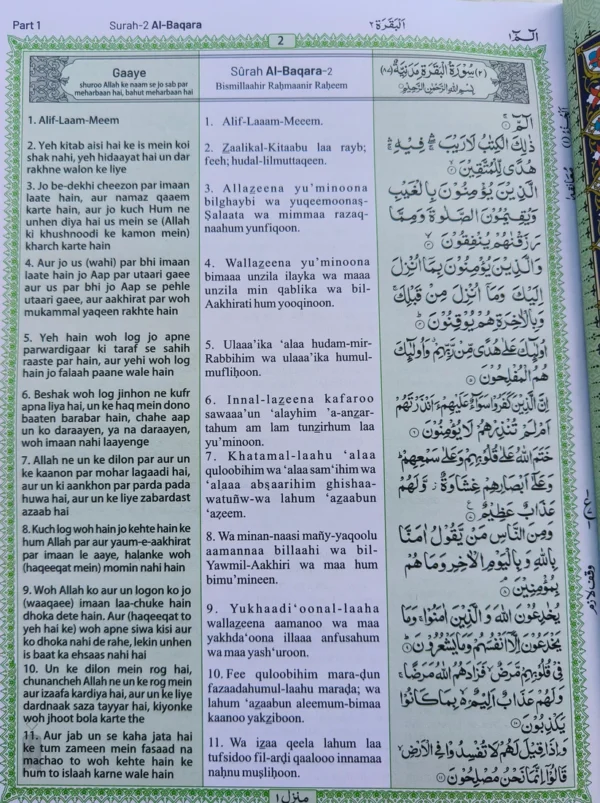 Part 1
Surah-2 Al-Baqara
البقرة ٢
الۤمّۤ ١
2
Gaaye
shuroo Allah ke naam se jo sab par
meharbaan hai, bahut meharbaan hai
1. Alif-Laam-Meem
2. Yeh kitab aisi hai ke is mein koi
shak nahi, yeh hidaayat hai un dar
rakhne walon ke liye
3. Jo be-dekhi cheezon par imaan
laate hain, aur namaz qaaem
karte hain, aur jo kuch Hum ne
unhen diya hai us mein se (Allah
ki khushnoodi ke kamon mein)
kharch karte hain
4. Aur jo us (wahi) par bhi imaan
laate hain jo Aap par utaari gaee
aur us par bhi jo Aap se pehle
utaari gaee, aur aakhirat par woh
mukammal yaqeen rakhte hain
5. Yeh hain woh log jo apne
parwardigaar ki taraf se sahih
raaste par hain, aur yehi woh log
hain jo falaah paane wale hain
6. Beshak woh log jinhon ne kufr
apna liya hai, un ke haq mein dono
baaten barabar hain, chahe aap
un ko daraayen, ya na daraayen,
woh imaan nahi laayenge
7. Allah ne un ke dilon par aur un
ke kaanon par mohar lagaadi hai,
aur un ki aankhon par parda pada
huwa hai, aur un ke liye zabardast
azaab hai
8. Kuch log woh hain jo kehte hain ke
hum Allah par aur yaum-e-aakhirat
par imaan le aaye, halanke woh
(haqeeqat mein) momin nahi hain
9. Woh Allah ko aur un logon ko jo
(waaqaee) imaan laa-chuke hain
dhoka dete hain. Aur (haqeeqat to
yeh hai ke) woh apne siwa kisi aur
ko dhoka nahi de rahe, lekin unhen
is baat ka ehsaas nahi hai
10. Un ke dilon mein rog hai,
chunancheh Allah ne un ke rog mein
aur izaafa kardiya hai, aur un ke liye
dardnaak saza tayyar hai, kiyonke
woh jhoot bola karte the
11. Aur jab un se kaha jata hai
ke tum zameen mein fasaad na
machao to woh kehte hain ke
hum to islaah karne wale hain
Sûrah Al-Baqara-2
Bismillaahir Raḥmaanir Raḥeem
1. Alif-Laaam-Meeem.
2. Z̲aalikal-Kitaabu laa rayb;
feeh; hudal-lilmuttaqeen.
3. Allaz̲eena yu’minoona
bilghaybi wa yuqeemoonaṣ-
Ṣalaata wa mimmaa razaq-
naahum yunfiqoon.
4. Wallaz̲eena yu’minoona
bimaaa unzila ilayka wa maaa
unzila min qablika wa bil-
Aakhirati hum yooqinoon.
5. Ulaaa’ika ‘alaa hudam-mir-
Rabbihim wa ulaaa’ika humul-
mufliḥoon.
6. Innal-laz̲eena kafaroo
sawaaa’un ‘alayhim ’a-anz̲ar-
tahum am lam tunz̲irhum laa
yu’minoon.
7. Khatamal-laahu ‘alaa
quloobihim wa ‘alaa sam‘ihim wa
‘alaaa abṣaarihim ghishaa-
watuñw-wa lahum ‘az̲aabun
‘aẓeem.
8. Wa minan-naasi mañy-yaqoolu
aamannaa billaahi wa bil-
Yawmil-Aakhiri wa maa hum
bimu’mineen.
9. Yukhaadi‘oonal-laaha
wallaz̲eena aamanoo wa maa
yakhda‘oona illaaa anfusahum
wa maa yash‘uroon.
10. Fee quloobihim mara-ḍun
fazaadahumul-laahu maraḍa; wa
lahum ‘az̲aabun aleemum-bimaa
kaanoo yakz̲iboon.
11. Wa iz̲aa qeela lahum laa
tufsidoo fil-arḍi qaalooo innamaa
naḥnu muṣliḥoon.
(٢) سُوْرَةُ الْبَقَرَةِ مَدَنِيَّةٌ (٨٧)
بِسْمِ اللّٰهِ الرَّحْمٰنِ الرَّحِيْمِ
الۤمّۤ ۝١
ذٰلِكَ الْكِتٰبُ لَا رَيْبَ ۛ فِيْهِ ۛ
هُدًى لِّلْمُتَّقِيْنَ ۝٢
الَّذِيْنَ يُؤْمِنُوْنَ بِالْغَيْبِ
وَيُقِيْمُوْنَ الصَّلٰوةَ وَمِمَّا
رَزَقْنٰهُمْ يُنْفِقُوْنَ ۝٣
وَالَّذِيْنَ يُؤْمِنُوْنَ بِمَاۤ اُنْزِلَ
اِلَيْكَ وَمَاۤ اُنْزِلَ مِنْ قَبْلِكَ ۚ
وَبِالْاٰخِرَةِ هُمْ يُوْقِنُوْنَ ۝٤
اُولٰٓئِكَ عَلٰى هُدًى مِّنْ رَّبِّهِمْ وَاُولٰٓئِكَ
هُمُ الْمُفْلِحُوْنَ ۝٥
اِنَّ الَّذِيْنَ كَفَرُوْا سَوَآءٌ عَلَيْهِمْ ءَاَنْذَرْتَهُمْ
اَمْ لَمْ تُنْذِرْهُمْ لَا يُؤْمِنُوْنَ ۝٦
خَتَمَ اللّٰهُ عَلٰى قُلُوْبِهِمْ وَعَلٰى سَمْعِهِمْ ؕ
وَعَلٰۤى اَبْصَارِهِمْ غِشَاوَةٌ ؗ وَّلَهُمْ
عَذَابٌ عَظِيْمٌ ۝٧
وَمِنَ النَّاسِ مَنْ يَّقُوْلُ اٰمَنَّا
بِاللّٰهِ وَبِالْيَوْمِ الْاٰخِرِ وَمَا هُمْ
بِمُؤْمِنِيْنَ ۝٨
يُخٰدِعُوْنَ اللّٰهَ وَالَّذِيْنَ اٰمَنُوْا ۚ وَمَا
يَخْدَعُوْنَ اِلَّاۤ اَنْفُسَهُمْ وَمَا يَشْعُرُوْنَ ۝٩
فِيْ قُلُوْبِهِمْ مَّرَضٌ ۙ فَزَادَهُمُ اللّٰهُ مَرَضًا ۚ
وَلَهُمْ عَذَابٌ اَلِيْمٌۢ ۙ بِمَا كَانُوْا
يَكْذِبُوْنَ ۝١٠
وَاِذَا قِيْلَ لَهُمْ لَا تُفْسِدُوْا فِي الْاَرْضِ ۙ
قَالُوْۤا اِنَّمَا نَحْنُ مُصْلِحُوْنَ ۝١١
وقف لازم
منزل ١